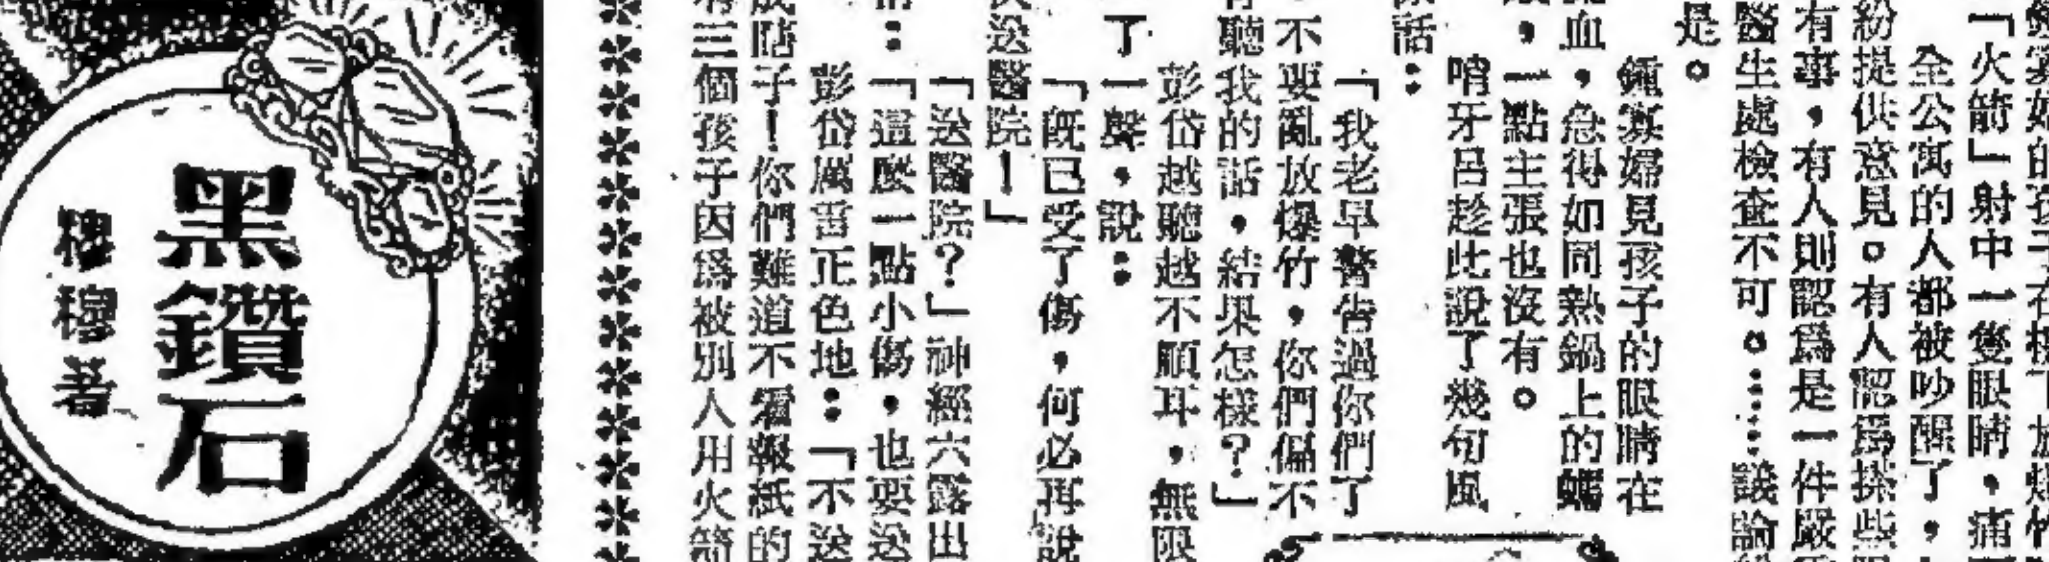 寡婦的孩子在樓下放爆竹
「火箭」射中一隻眼睛，痛
全公寓的人都被吵醒了，
紛提供意見。有人認爲搽些
有事，有人則認爲是一件嚴
醫生處檢查不可。……議論
是。
鍾寡婦見孩子的眼睛在
血，急得如同熱鍋上的螞
，一點主張也沒有。
哨牙呂趁此說了幾句風
話：
「我老早警告過你們了
，不要亂放爆竹，你們偏不
聽我的話，結果怎樣？」
彭岱越聽越不順耳，無限
了一聲，說：
「旣已受了傷，何必再說
送醫院！」
「送醫院？」神經六露出
：「這麼一點小傷，也要送
彭岱厲言正色地：「不送
成瞎子！你們難道不看報紙的
有三個孩子因爲被別人用火箭
黑鑽石
穆穆著